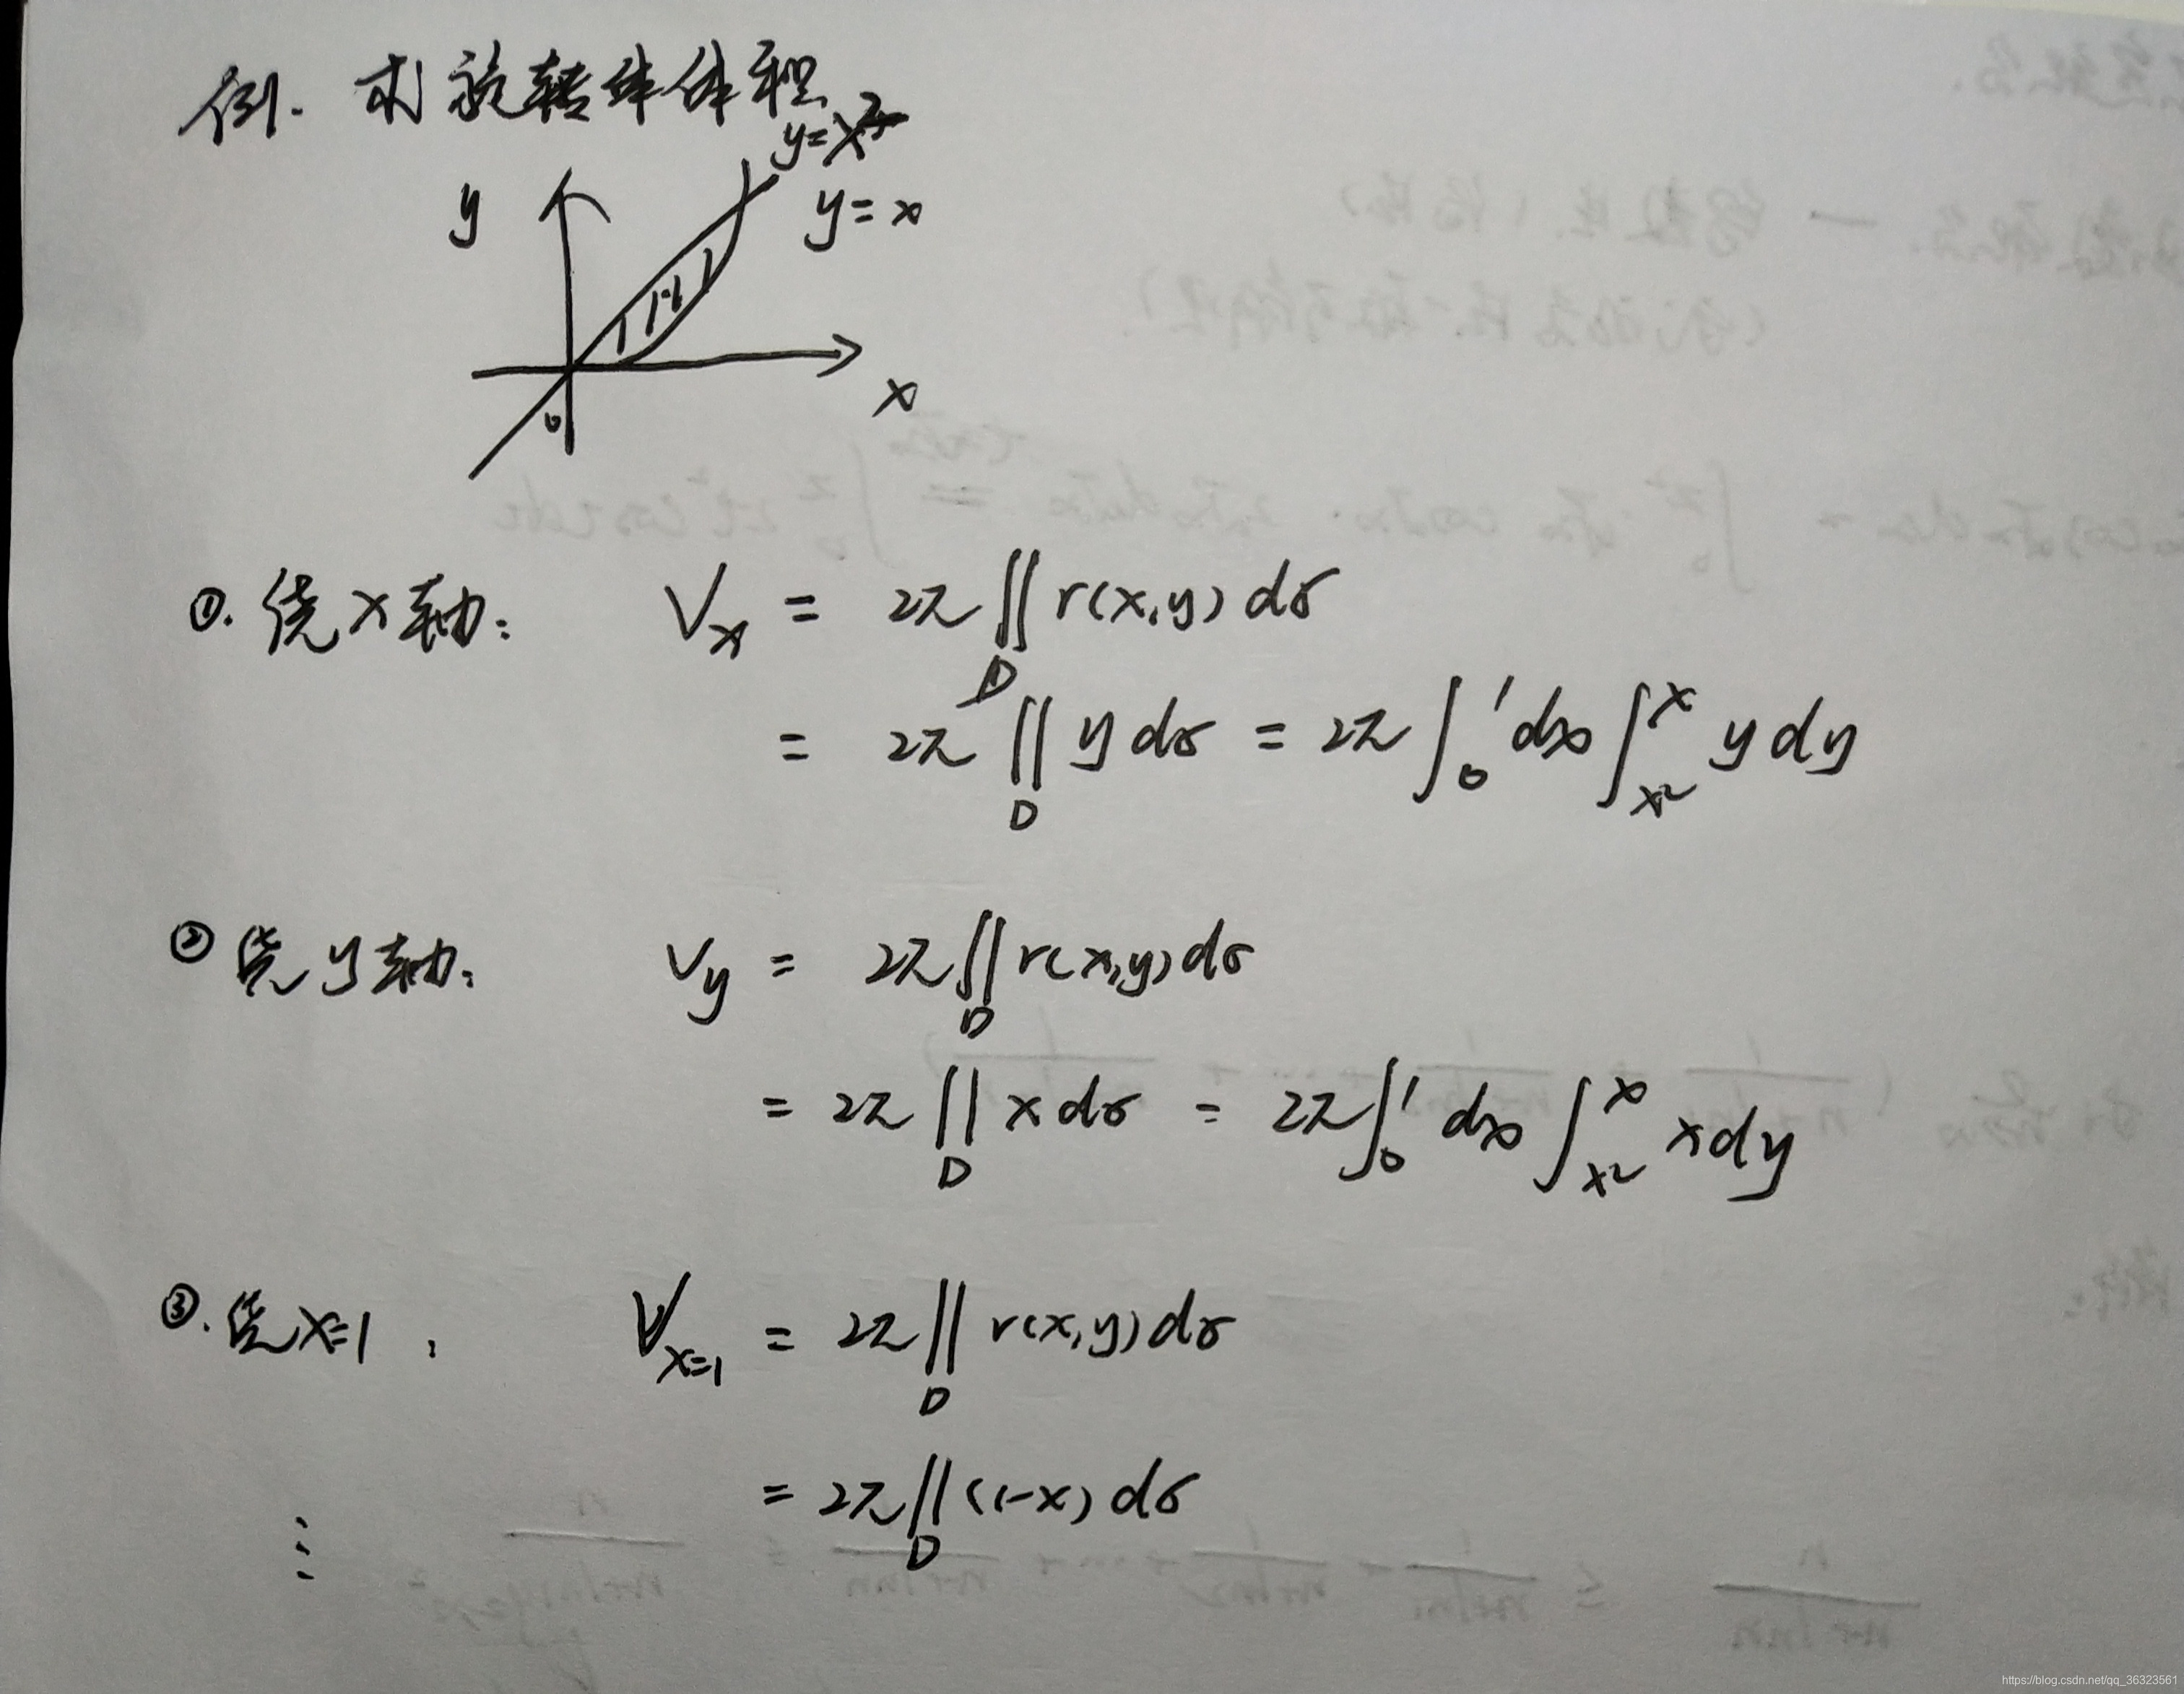 例. 求旋转体体积
y=x²
y
y=x
x
0
①. 绕x轴: Vx = 2π∬D r(x,y)dσ
= 2π∬D y dσ = 2π∫₀¹dx∫_{x²}^{x} y dy
② 绕y轴: Vy = 2π∬D r(x,y)dσ
= 2π∬D x dσ = 2π∫₀¹dx∫_{x²}^{x} x dy
③. 绕x=1: V_{x=1} = 2π∬D r(x,y)dσ
= 2π∬D (1-x)dσ
⋮
https://blog.csdn.net/qq_36323561